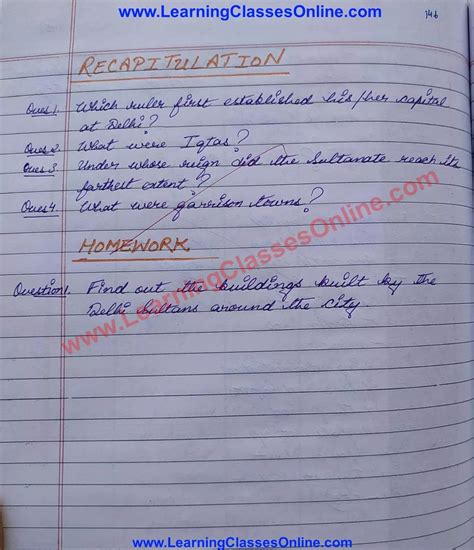 www.LearningClassesOnline.com
146
RECAPITULATION
Ques 1. Which ruler first established his/her capital
at Delhi?
Ques 2. What were Iqtas?
Ques 3. Under whose reign did the Sultanate reach its
farthest extent?
Ques 4. What were garrison towns?
HOMEWORK
Question 1. Find out the buildings built by the
Delhi Sultans around the city.
www.LearningClassesOnline.com
www.LearningClassesOnline.com